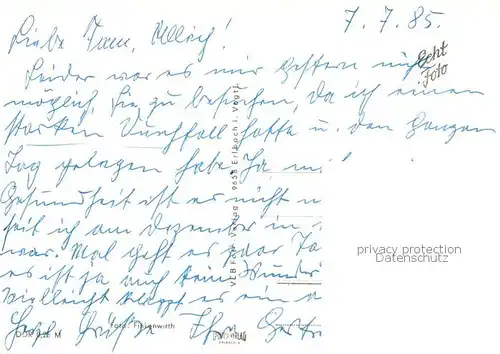 7. 7. 85.
Liebe Fam. Ullrich!
Echt Foto
Leider war es mir gestern nicht
möglich, Sie zu besuchen, da ich einen
starken Durchfall hatte u. den ganzen
Tag gelegen habe. Ja, m
Gesundheit ist es nicht
seit ich am Dezember in
war. Mal geht es paar Ta
es ist ja auch kein Wunder
Vielleicht klappt es ein
Herzl. Grüße Ihre
VEB Foto-Verlag · 9658 Erlbach i. Vogtl.
Foto: Flechsenwirth
M
privacy protection
Datenschutz